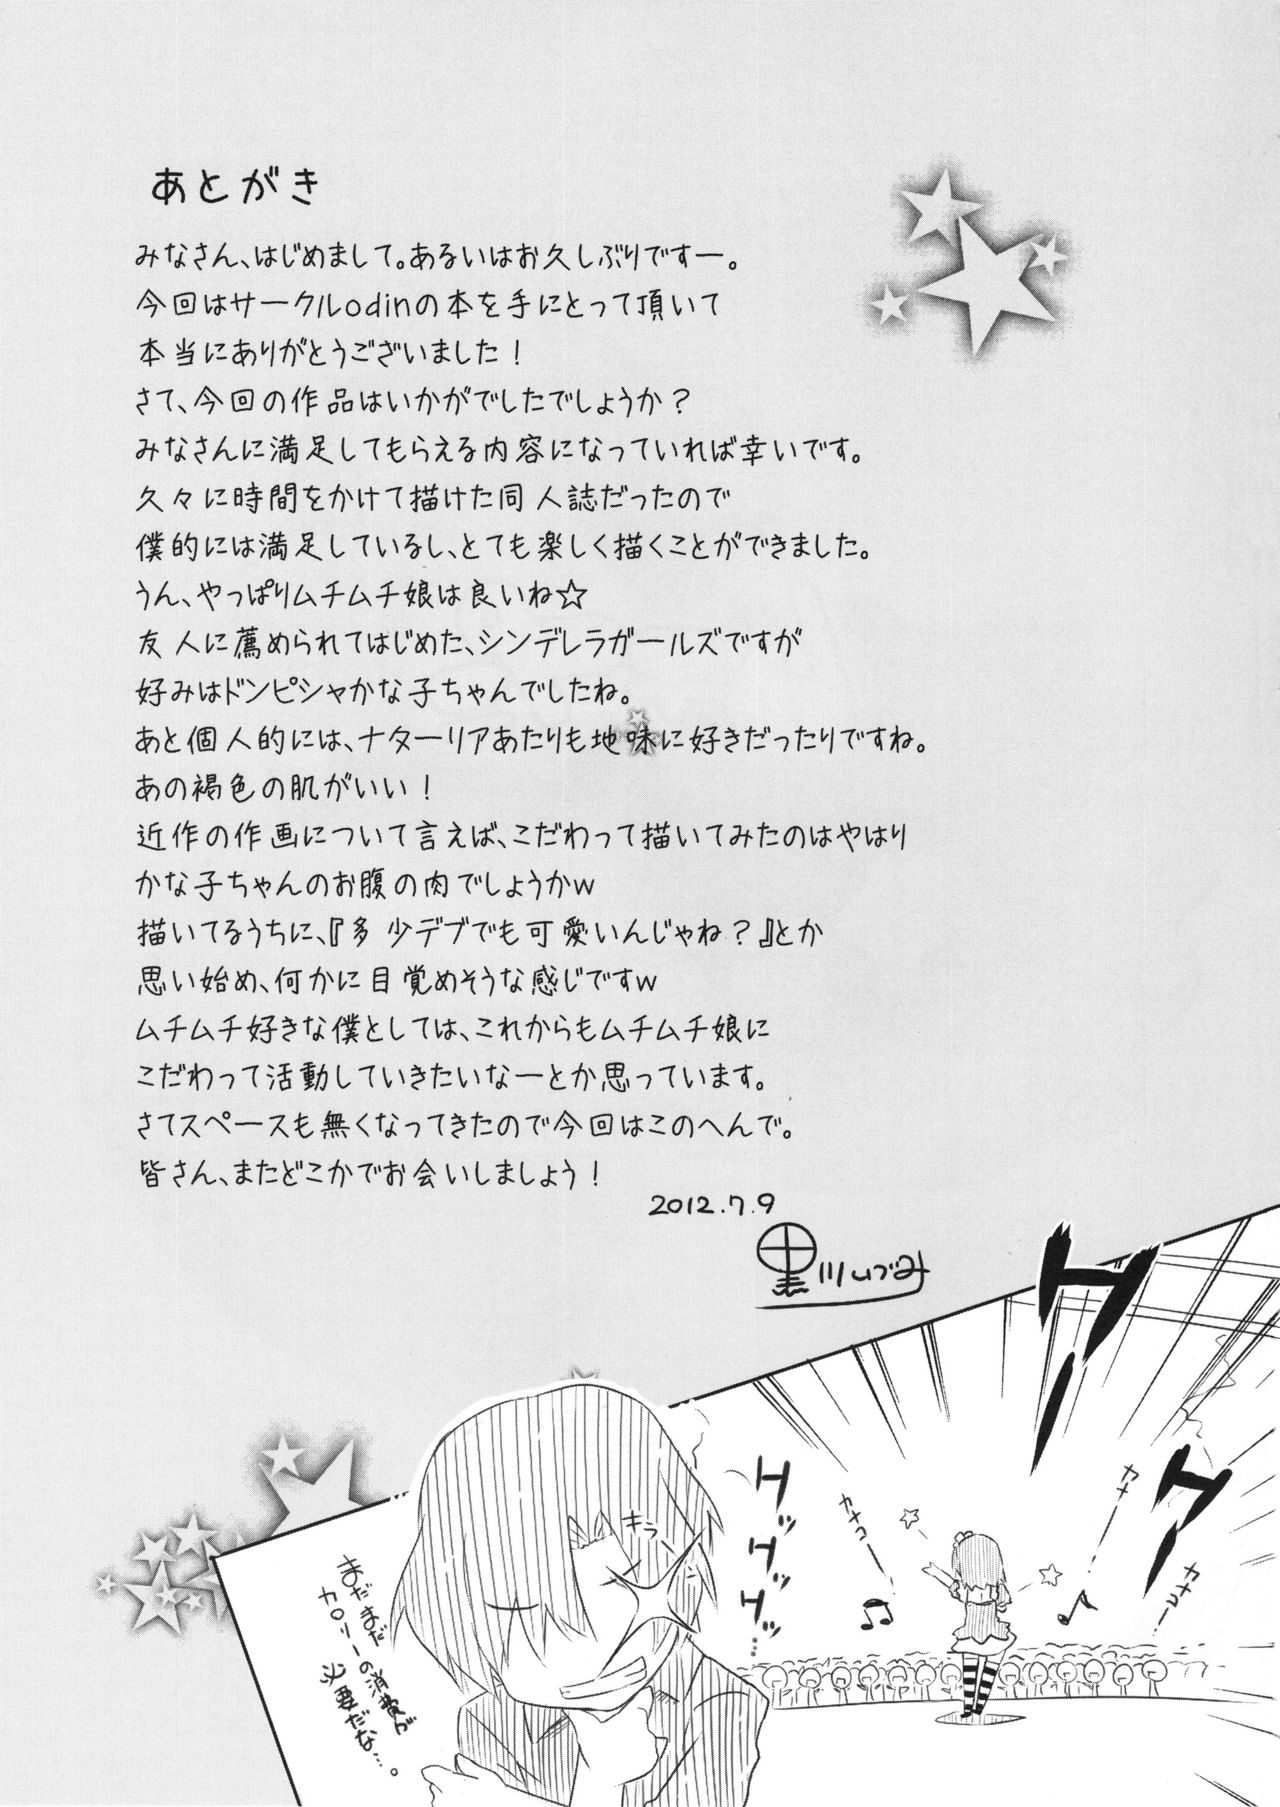 あとがき
みなさん、はじめまして。あるいはお久しぶりですー。
今回はサークルodinの本を手にとって頂いて
本当にありがとうございました！
さて、今回の作品はいかがでしたでしょうか？
みなさんに満足してもらえる内容になっていれば幸いです。
久々に時間をかけて描けた同人誌だったので
僕的には満足しているし、とても楽しく描くことができました。
うん、やっぱりムチムチ娘は良いね☆
友人に薦められてはじめた、シンデレラガールズですが
好みはドンピシャかな子ちゃんでしたね。
あと個人的には、ナターリアあたりも地味に好きだったりですね。
あの褐色の肌がいい！
近作の作画について言えば、こだわって描いてみたのはやはり
かな子ちゃんのお腹の肉でしょうかw
描いてるうちに、『多少デブでも可愛いんじゃね？』とか
思い始め、何かに目覚めそうな感じですw
ムチムチ好きな僕としては、これからもムチムチ娘に
こだわって活動していきたいなーとか思っています。
さてスペースも無くなってきたので今回はこのへんで。
皆さん、またどこかでお会いしましょう！
2012.7.9
黒川いづみ
カナコー
カナコー
グッグッグッ…
キラーン
まだまだ
カロリーの消費が
必要だな…。